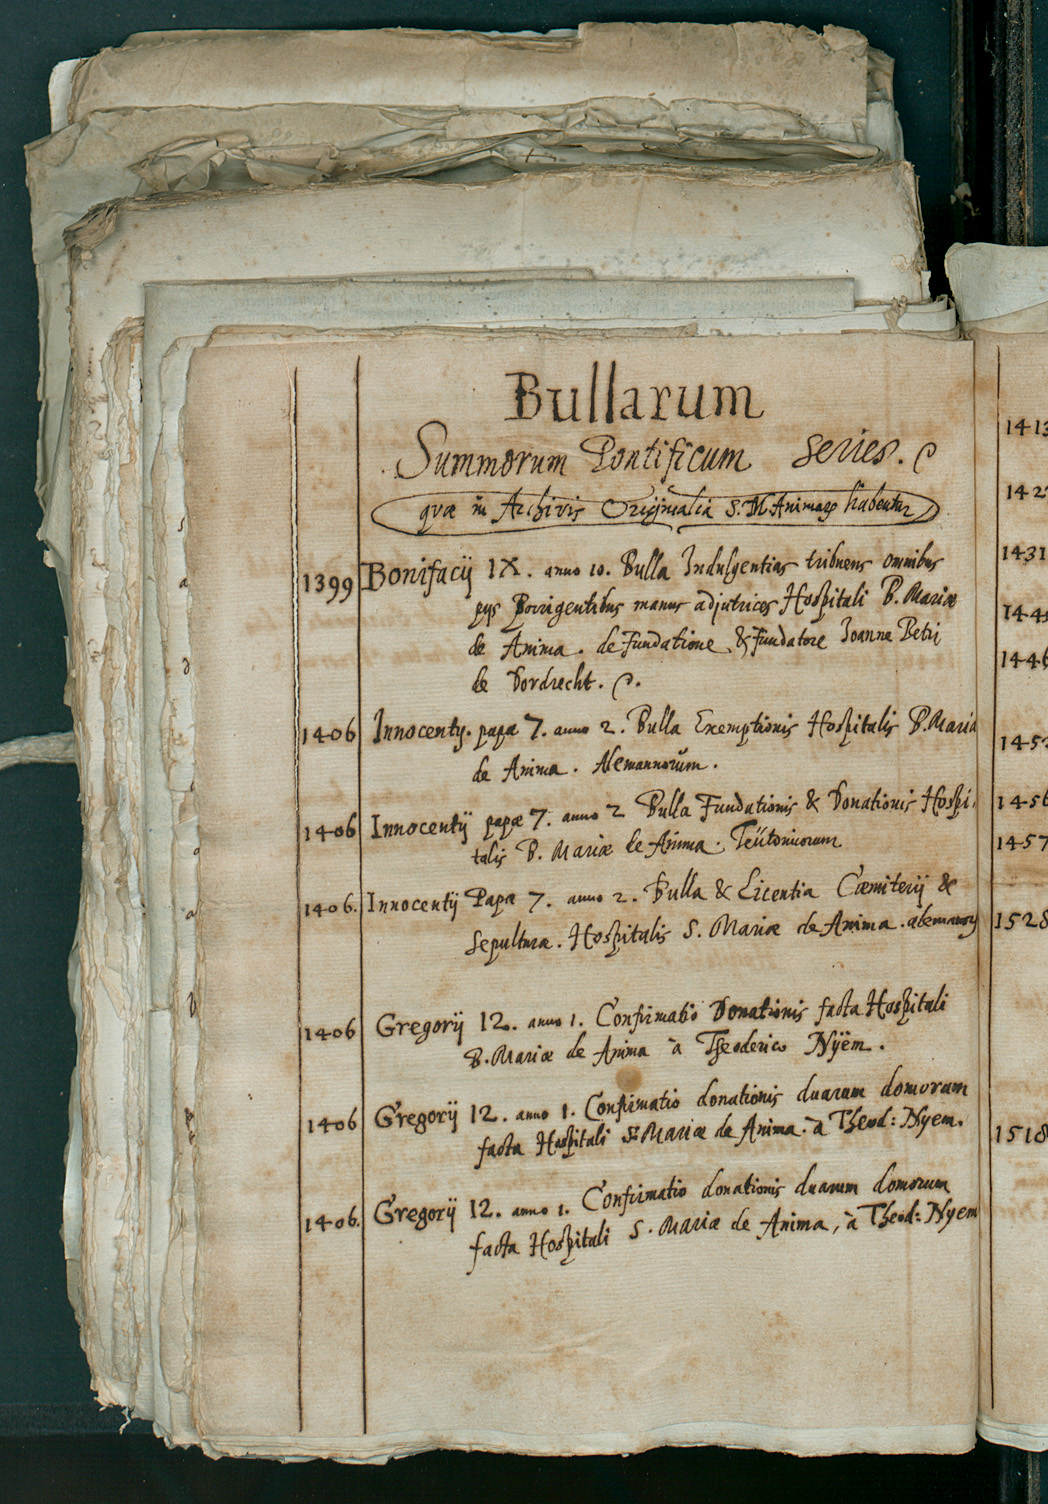 Bullarum
Summorum Pontificum series.
quæ in Archivis Originalia S. M. Animaꝝ habentur
1399 Bonifacij IX. anno 10. Bulla Indulgentias tribuens omnibus
pijs Porrigentibus manus adjutrices Hospitali B. Mariæ
de Anima. de Fundatione & Fundatore Joanne Petri
de Dordrecht.
1406 Innocentij. papæ 7. anno 2. Bulla Exemptionis Hospitalis B. Maria
de Anima. Alemannorum.
1406 Innocentij papæ 7. anno 2 Bulla Fundationis & Donationis Hospi
talis B. Mariæ de Anima. Teutonicorum
1406. Innocentij Papæ 7. anno 2. Bulla & Licentia Cæmiterij &
sepulturæ. Hospitalis S. Mariæ de Anima.
1406 Gregorij 12. anno 1. Confirmatio Donationis facta Hospitali
B. Mariæ de Anima à Theoderico Nÿem.
1406 Gregorij 12. anno 1. Confirmatio donationis duarum domorum
facta Hospitali Sᵃ: Mariæ de Anima. à Theod: Nyem.
1406. Gregorij 12. anno 1. Confirmatio donationis duarum domorum
facta Hospitali S. Mariæ de Anima, à Theod: Nyem
1413
142
1431
144
1446
145
1456
1457
1528
1518